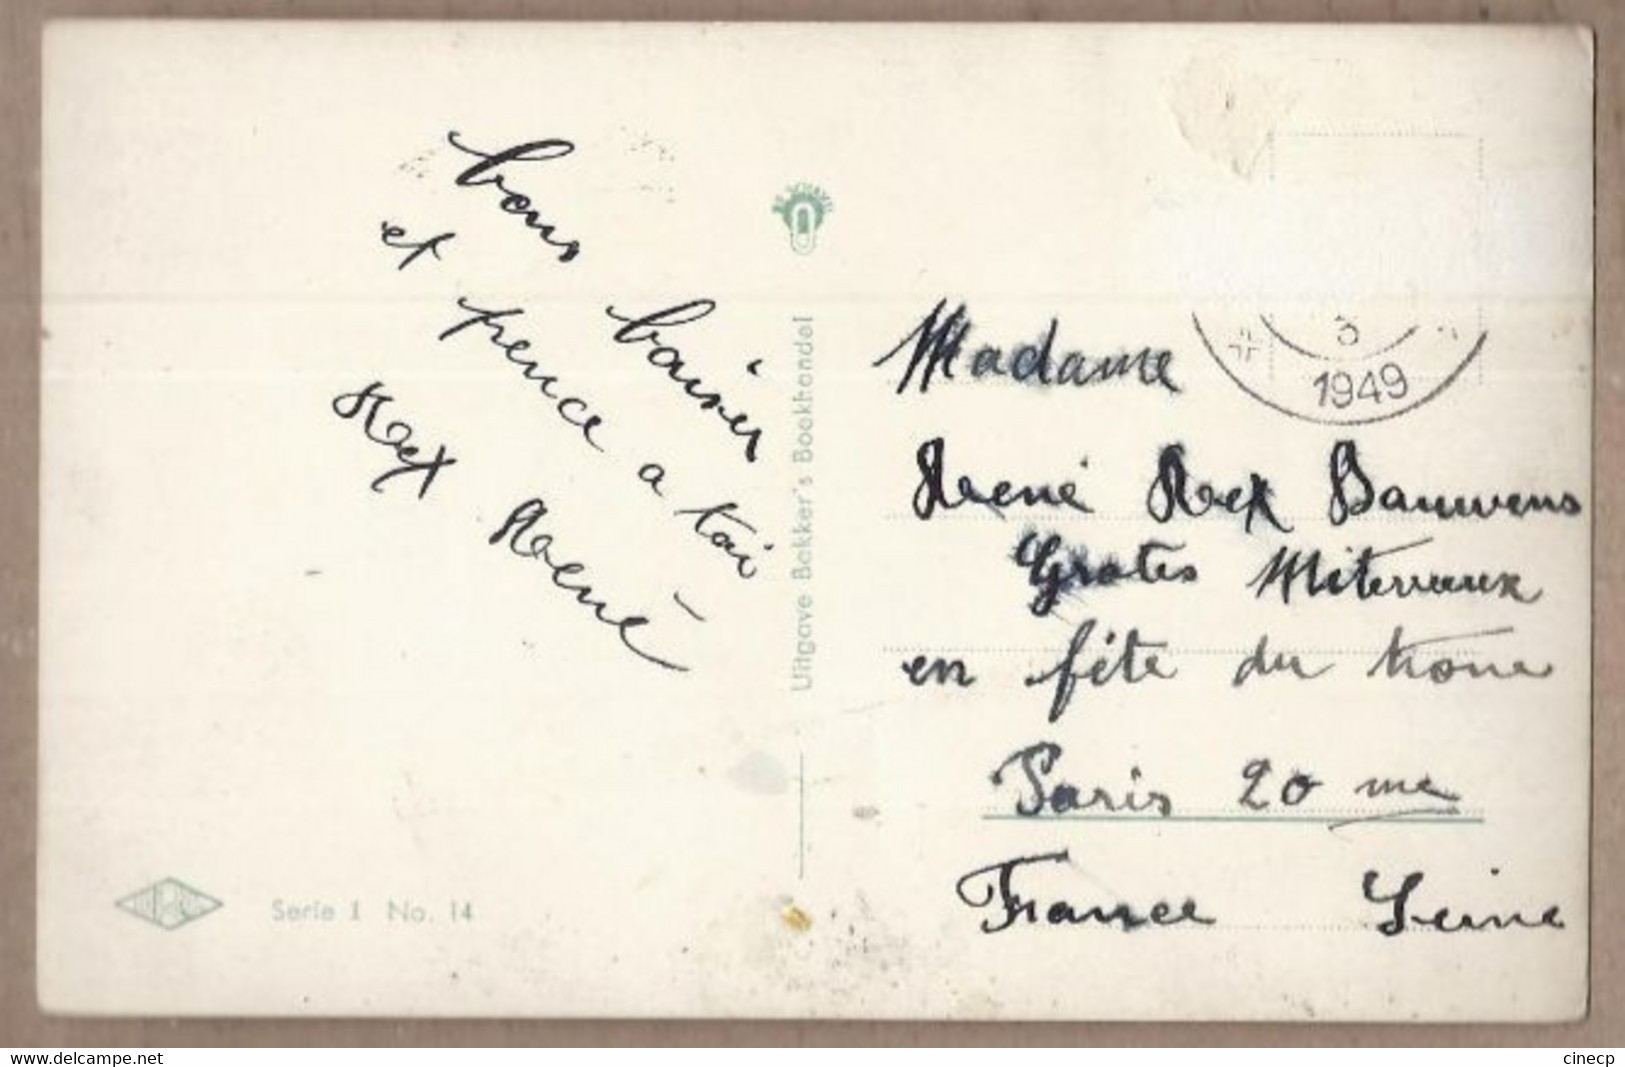 bons baiser
et pence a toi
Rex René
Uitgave Bakker's Boekhandel
Serie 1 No. 14
3
1949
Madame
René Rex Bauwens
Grotes Miterveux
en fête du trone
Paris 20 me
France Seine
www.delcampe.net
cinecp